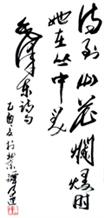 待到山花爛熳时
她在丛中笑
毛泽东诗句
乙酉
北京